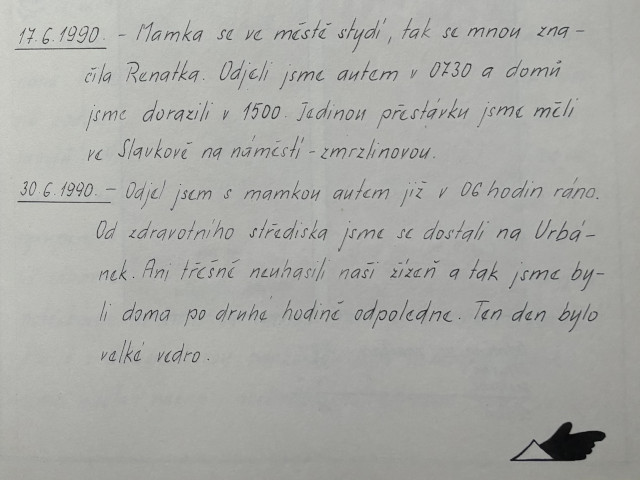 17.6.1990. - Mamka se ve městě stydí, tak se mnou zna-
čila Renatka. Odjeli jsme autem v 0730 a domů
jsme dorazili v 1500. Jedinou přestávku jsme měli
ve Slavkově na náměstí - zmrzlinovou.
30.6.1990. - Odjel jsem s mamkou autem již v 06 hodin ráno.
Od zdravotního střediska jsme se dostali na Urbá-
nek. Ani třešně neuhasili naši žízeň a tak jsme by-
li doma po druhé hodině odpoledne. Ten den bylo
velké vedro.